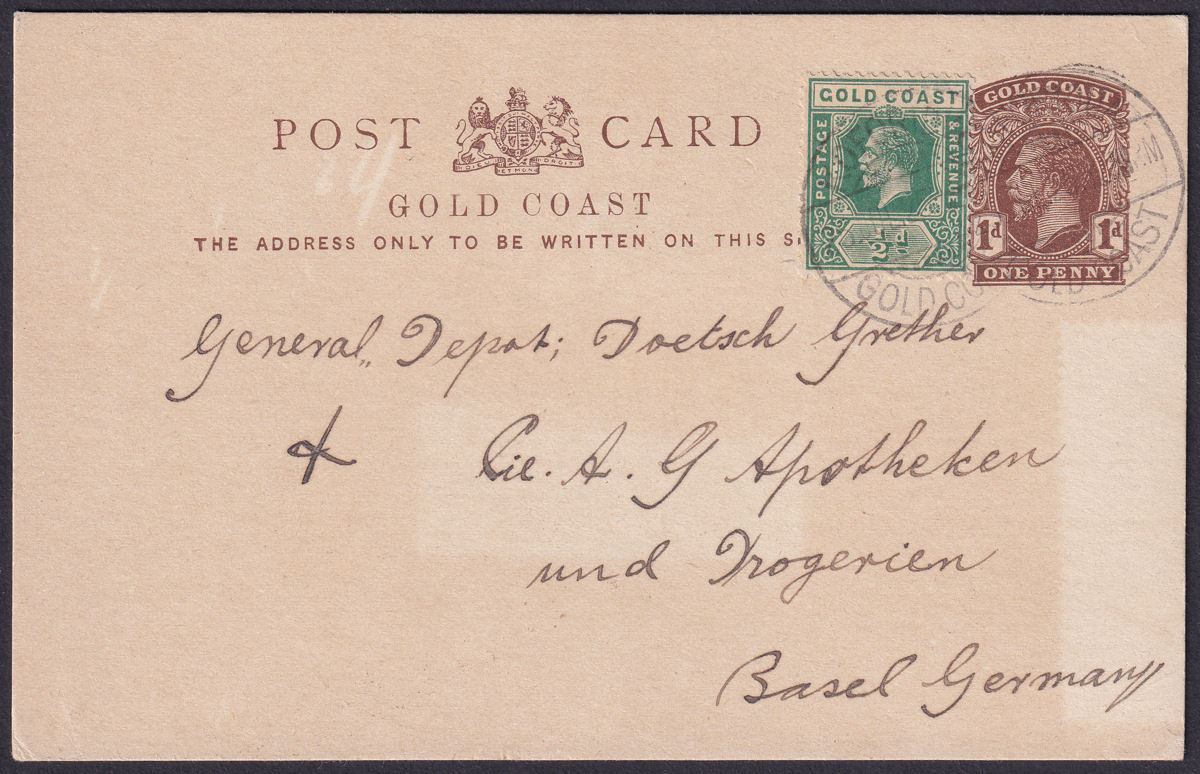 POST CARD
DIEU ET MON DROIT
GOLD COAST
THE ADDRESS ONLY TO BE WRITTEN ON THIS
GOLD COAST
POSTAGE
& REVENUE
½d
GOLD COAST
1d 1d
ONE PENNY
GOLD CO
COAST
General, Depot; Doetsch Grether
& Cie. A. G Apotheken
und Drogerien
Basel Germany